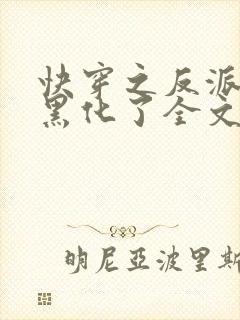 快穿之反派
黑化了全文
明尼亞波里斯